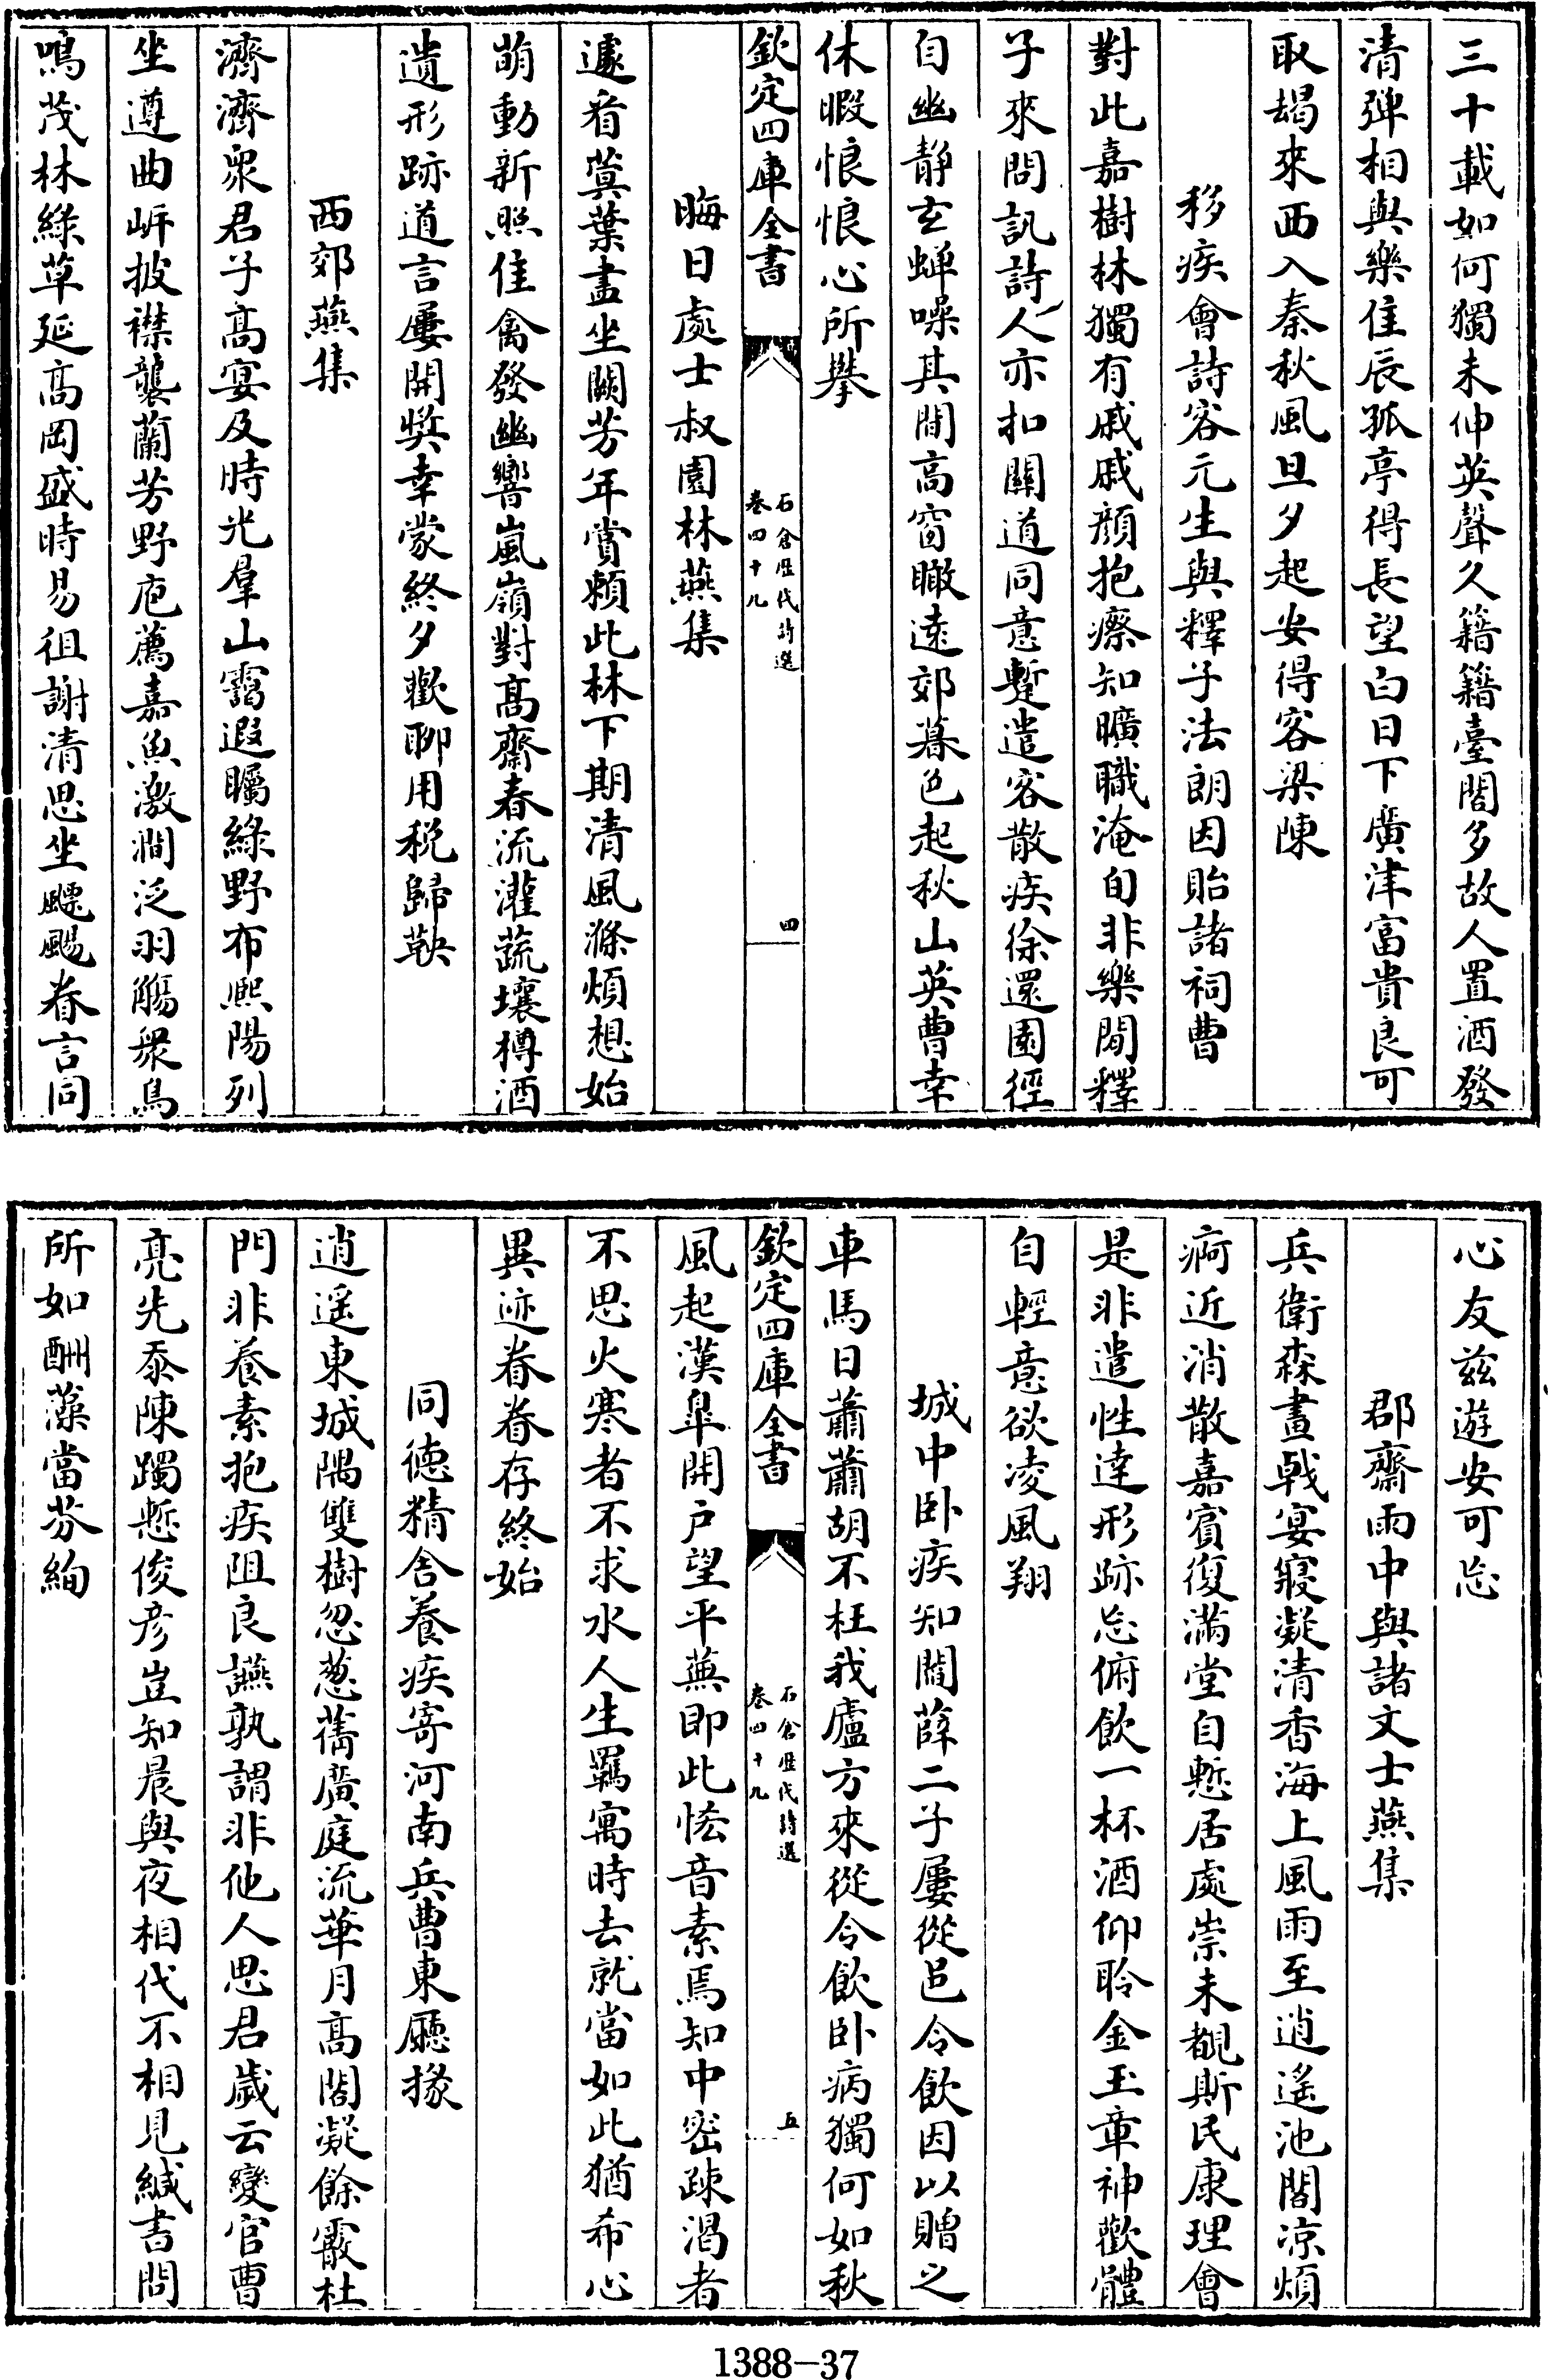 三十載如何獨未伸英聲久籍籍臺閣多故人置酒發
清彈相與樂佳辰孤亭得長望白日下廣津富貴良可
取朅來西入秦秋風旦夕起安得客梁陳
移疾會詩客元生與釋子法朗因貽諸祠曹
對此嘉樹林獨有戚戚顔抱瘵知曠職淹旬非樂閒釋
子來問訊詩人亦扣關道同意蹔遣客散疾徐還園徑
自幽静玄蟬噪其間高窗瞰遠郊暮色起秋山英曹幸
休暇悢悢心所攀
欽定四庫全書
石倉歷代詩選
卷四十九
四
晦日處士叔園林燕集
遽看蓂葉盡坐闕芳年賞賴此林下期清風滌煩想始
萌動新煦佳禽發幽響嵐嶺對髙齋春流灌蔬壤樽酒
遺形跡道言屢開奬幸蒙終夕歡聊用税歸鞅
西郊燕集
濟濟衆君子髙宴及時光羣山靄遐矚綠野布熙陽列
坐遵曲岍披襟襲蘭芳野庖薦嘉魚激澗泛羽觴衆鳥
鳴茂林綠草延髙岡盛時易徂謝清思坐飄颺眷言同
心友兹遊安可忘
郡齋雨中與諸文士燕集
兵衛森畫戟宴寢凝清香海上風雨至逍遙池閣凉煩
疴近消散嘉賓復滿堂自慙居處崇未覩斯民康理會
是非遣性達形跡忘俯飲一杯酒仰聆金玉章神歡體
自輕意欲凌風翔
城中卧疾知閻薛二子屢從邑令飲因以贈之
車馬日蕭蕭胡不枉我廬方來從令飲卧病獨何如秋
欽定四庫全書
石倉歷代詩選
卷四十九
五
風起漢臯開户望平蕪即此恡音素焉知中密疎渴者
不思火寒者不求水人生羈寓時去就當如此猶希心
異迹眷眷存終始
同德精舍養疾寄河南兵曹東廳掾
逍遥東城隅雙樹忽葱蒨廣庭流華月髙閣凝餘霰杜
門非養素抱疾阻良讌孰謂非他人思君歲云變官曹
亮先忝陳躅慙俊彦豈知晨與夜相代不相見緘書問
所如酬藻當芬絢
1388-37